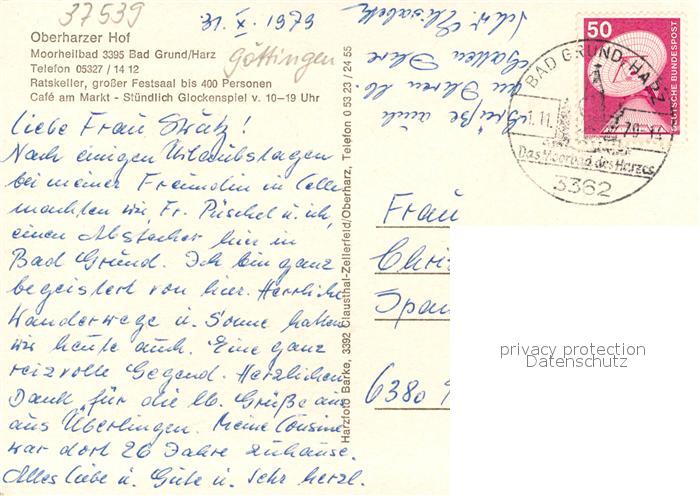 37539
31.X.1979
Göttingen
Oberharzer Hof
Moorheilbad 3395 Bad Grund/Harz
Telefon 05327 / 14 12
Ratskeller, großer Festsaal bis 400 Personen
Café am Markt - Stündlich Glockenspiel v. 10–19 Uhr
Liebe Frau Strätz!
Nach einigen Urlaubstagen
bei meiner Freundin in Celle
machten wir, Fr. Püschel u. ich,
einen Abstecher hier in
Bad Grund. Ich bin ganz
begeistert von hier. Herrliche
Wanderwege u. Sonne hatten
wir heute auch. Eine ganz
reizvolle Gegend. Herzlichen
Dank für die lb. Grüße aus
aus Überlingen. Meine Cousine
war dort 26 Jahre zuhause.
Alles liebe u. Gute u. sehr herzl.
Grüße auch
an Ihren lb.
Gatten Ihre
Schw. Elisabeth
Harzfoto Barke, 3392 Clausthal-Zellerfeld/Oberharz, Telefon 0 53 23 / 24 55
50
DEUTSCHE BUNDESPOST
BAD GRUND, HARZ
1.11. 79-14
Das Moorbad des Harzes
3362
Frau
Chri
Span
6380
privacy protection
Datenschutz